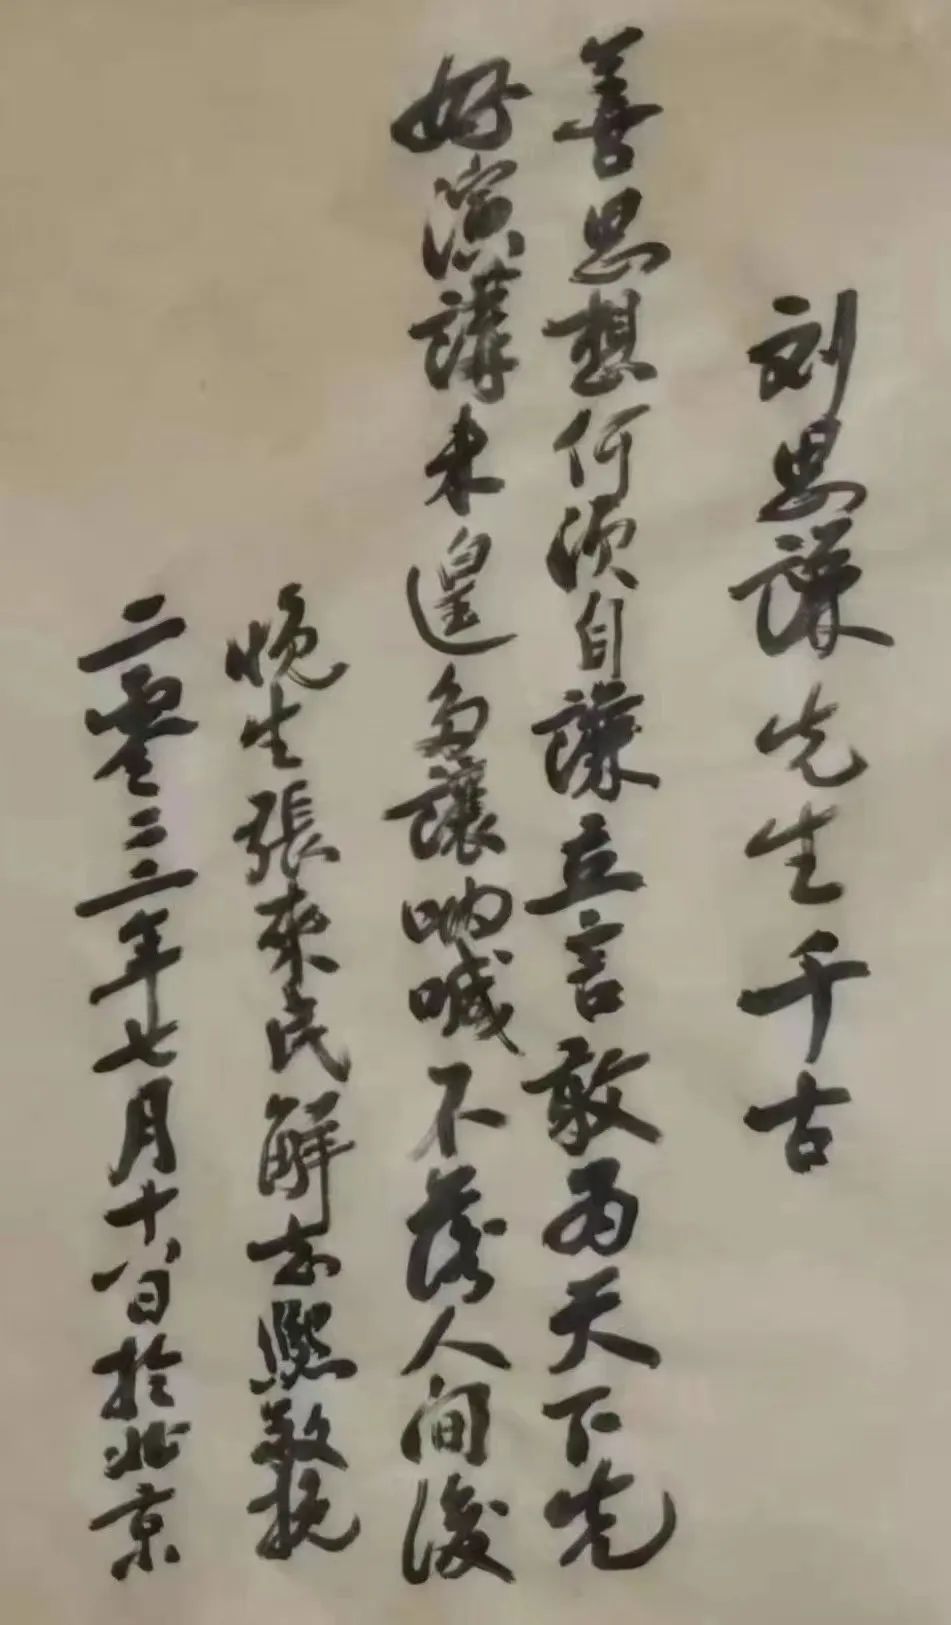 刘思謙先生千古
善思想何須自謙立言敢為天下先
好演講未遑多讓呐喊不落人間後
晚生張來民解志熙敬挽
二零二二年七月十八日於北京